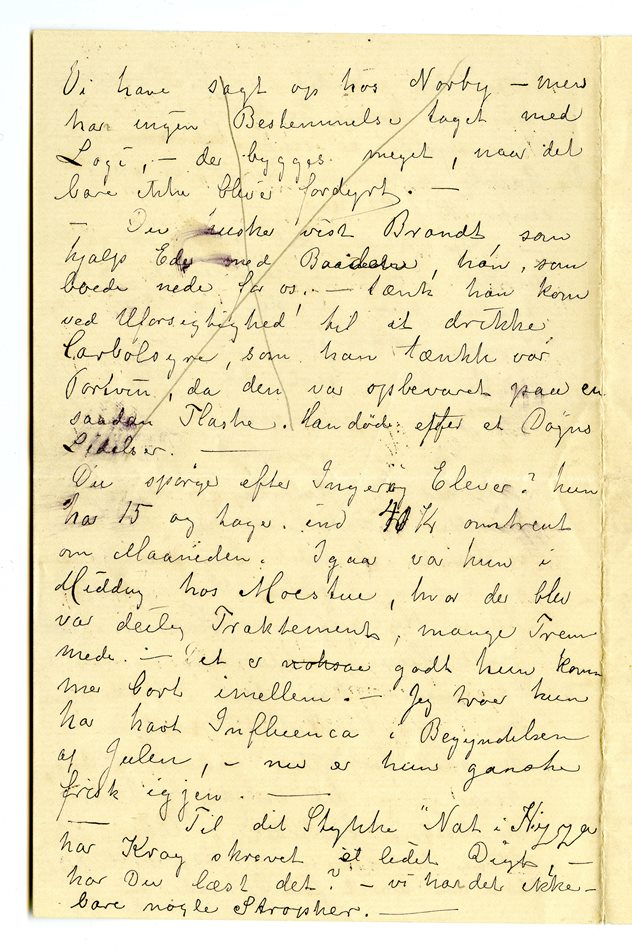 Vi have sagt op hos Norby – men
har ingen Bestemmelse taget med
Logi, – der bygges meget, naar det
bare ikke bliver fordyrt. –
– Du huske vist Brandt, som
hjalp Edv med Baadene, han, som
boede nede for os. – tænk han kom
ved Uforsigtighed til at drikke
Carbolsyre, som han tænkte var
Portvin, da den var opbevaret paa en
saadan Flaske. Han døde efter et Døgns
Lidelser. –
Du spørge efter Ingers Elever? hun
har 15 og tage ind 40 Kr omtrent
om Maaneden. Igaar var hun i
Middag hos Moestue, hvor der blev
var deilig Traktement, mange Frem
mede. – Det er godt hun kom
mer bort imellem. – Jeg tror hun
har havt Influenca i Begyndelsen
af Julen, – nu er hun ganske
frisk igjen. –
– Til dit Stykke "Nat i
har Krag skrevet et lidet Digt, –
har Du læst det? – vi har det ikke –
bare nogle Stropher. –